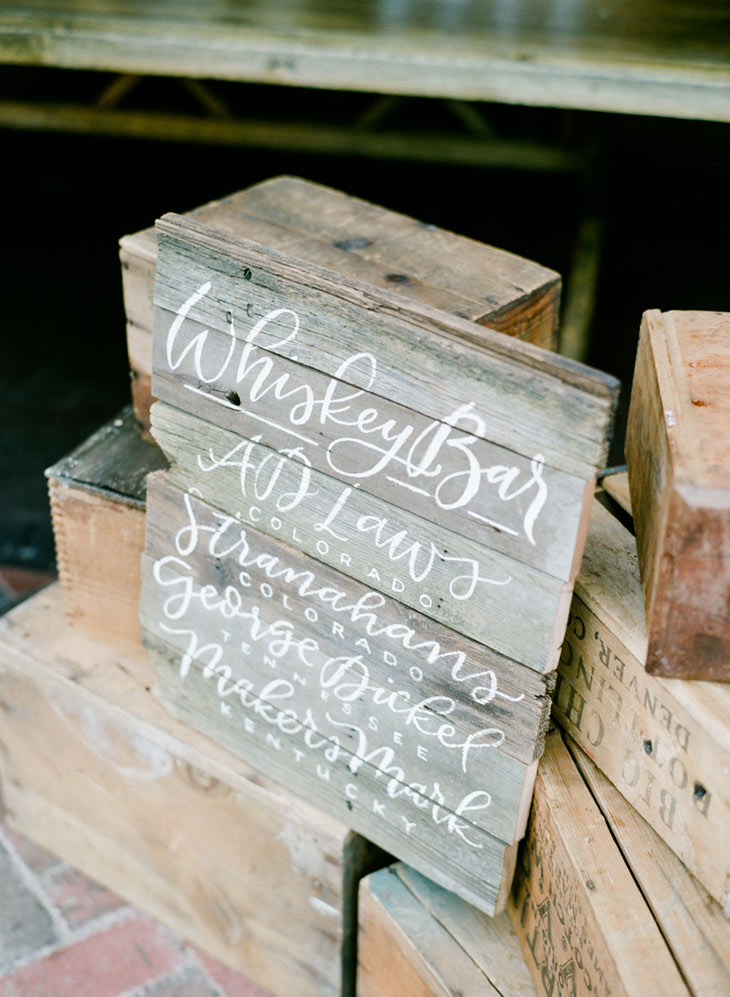 Whiskey Bar
AD Laws
COLORADO
Stranahans
COLORADO
George Dickel
TENNESSEE
Makers Mark
KENTUCKY
BIG CHI
BOTTLING
DENVER, C